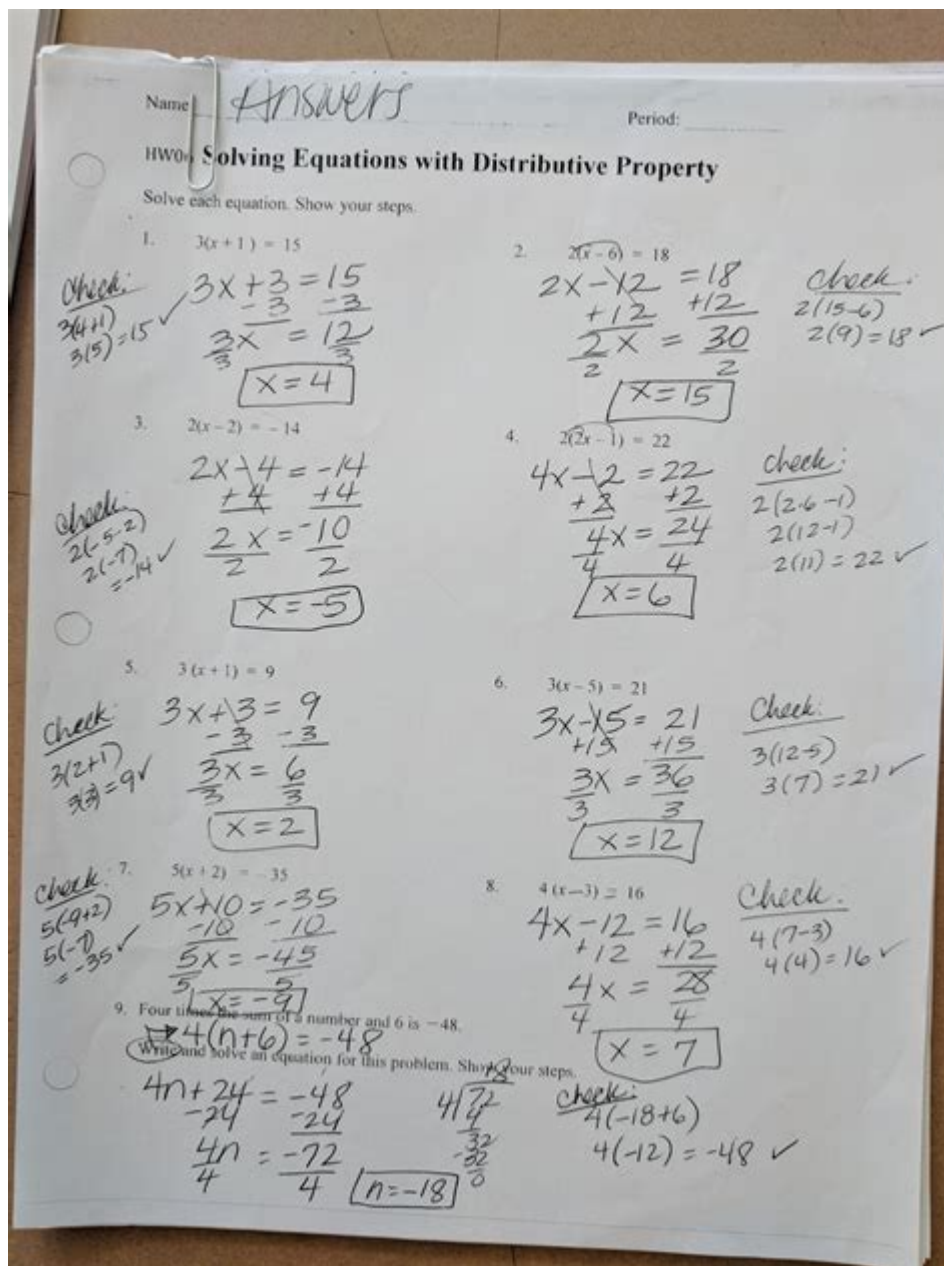 Name Answers Period:
HW0 Solving Equations with Distributive Property
Solve each equation. Show your steps.
1. 3(x + 1) = 15
Check:
3(4+1)
3(5)=15 ✓
3x+3=15
-3 -3
3x = 12
3 3
x=4
2. 2(x - 6) = 18
2x-12 = 18
+12 +12
2x = 30
2 2
x=15
check:
2(15-6)
2(9)=18 ✓
3. 2(x - 2) = - 14
2x-4=-14
+4 +4
2x=-10
2 2
x=-5
check:
2(-5-2)
2(-7)
=-14 ✓
4. 2(2x - 1) = 22
4x-2=22
+2 +2
4x=24
4 4
x=6
check:
2(2·6-1)
2(12-1)
2(11)=22 ✓
5. 3(x + 1) = 9
Check:
3(2+1)
3(3)=9 ✓
3x+3=9
-3 -3
3x=6
3 3
x=2
6. 3(x - 5) = 21
3x-15=21
+15 +15
3x=36
3 3
x=12
Check:
3(12-5)
3(7)=21 ✓
7. 5(x + 2) = - 35
check:
5(-9+2)
5(-7)
=-35 ✓
5x+10=-35
-10 -10
5x=-45
5 5
x=-9
8. 4(x-3) = 16
4x-12=16
+12 +12
4x=28
4 4
x=7
Check.
4(7-3)
4(4)=16 ✓
9. Four times the sum of a number and 6 is -48.
4(n+6)=-48
Write and solve an equation for this problem. Show your steps.
4n+24=-48
-24 -24
4n=-72
4 4
n=-18
18
4)72
4
32
-32
0
check:
4(-18+6)
4(-12)=-48 ✓